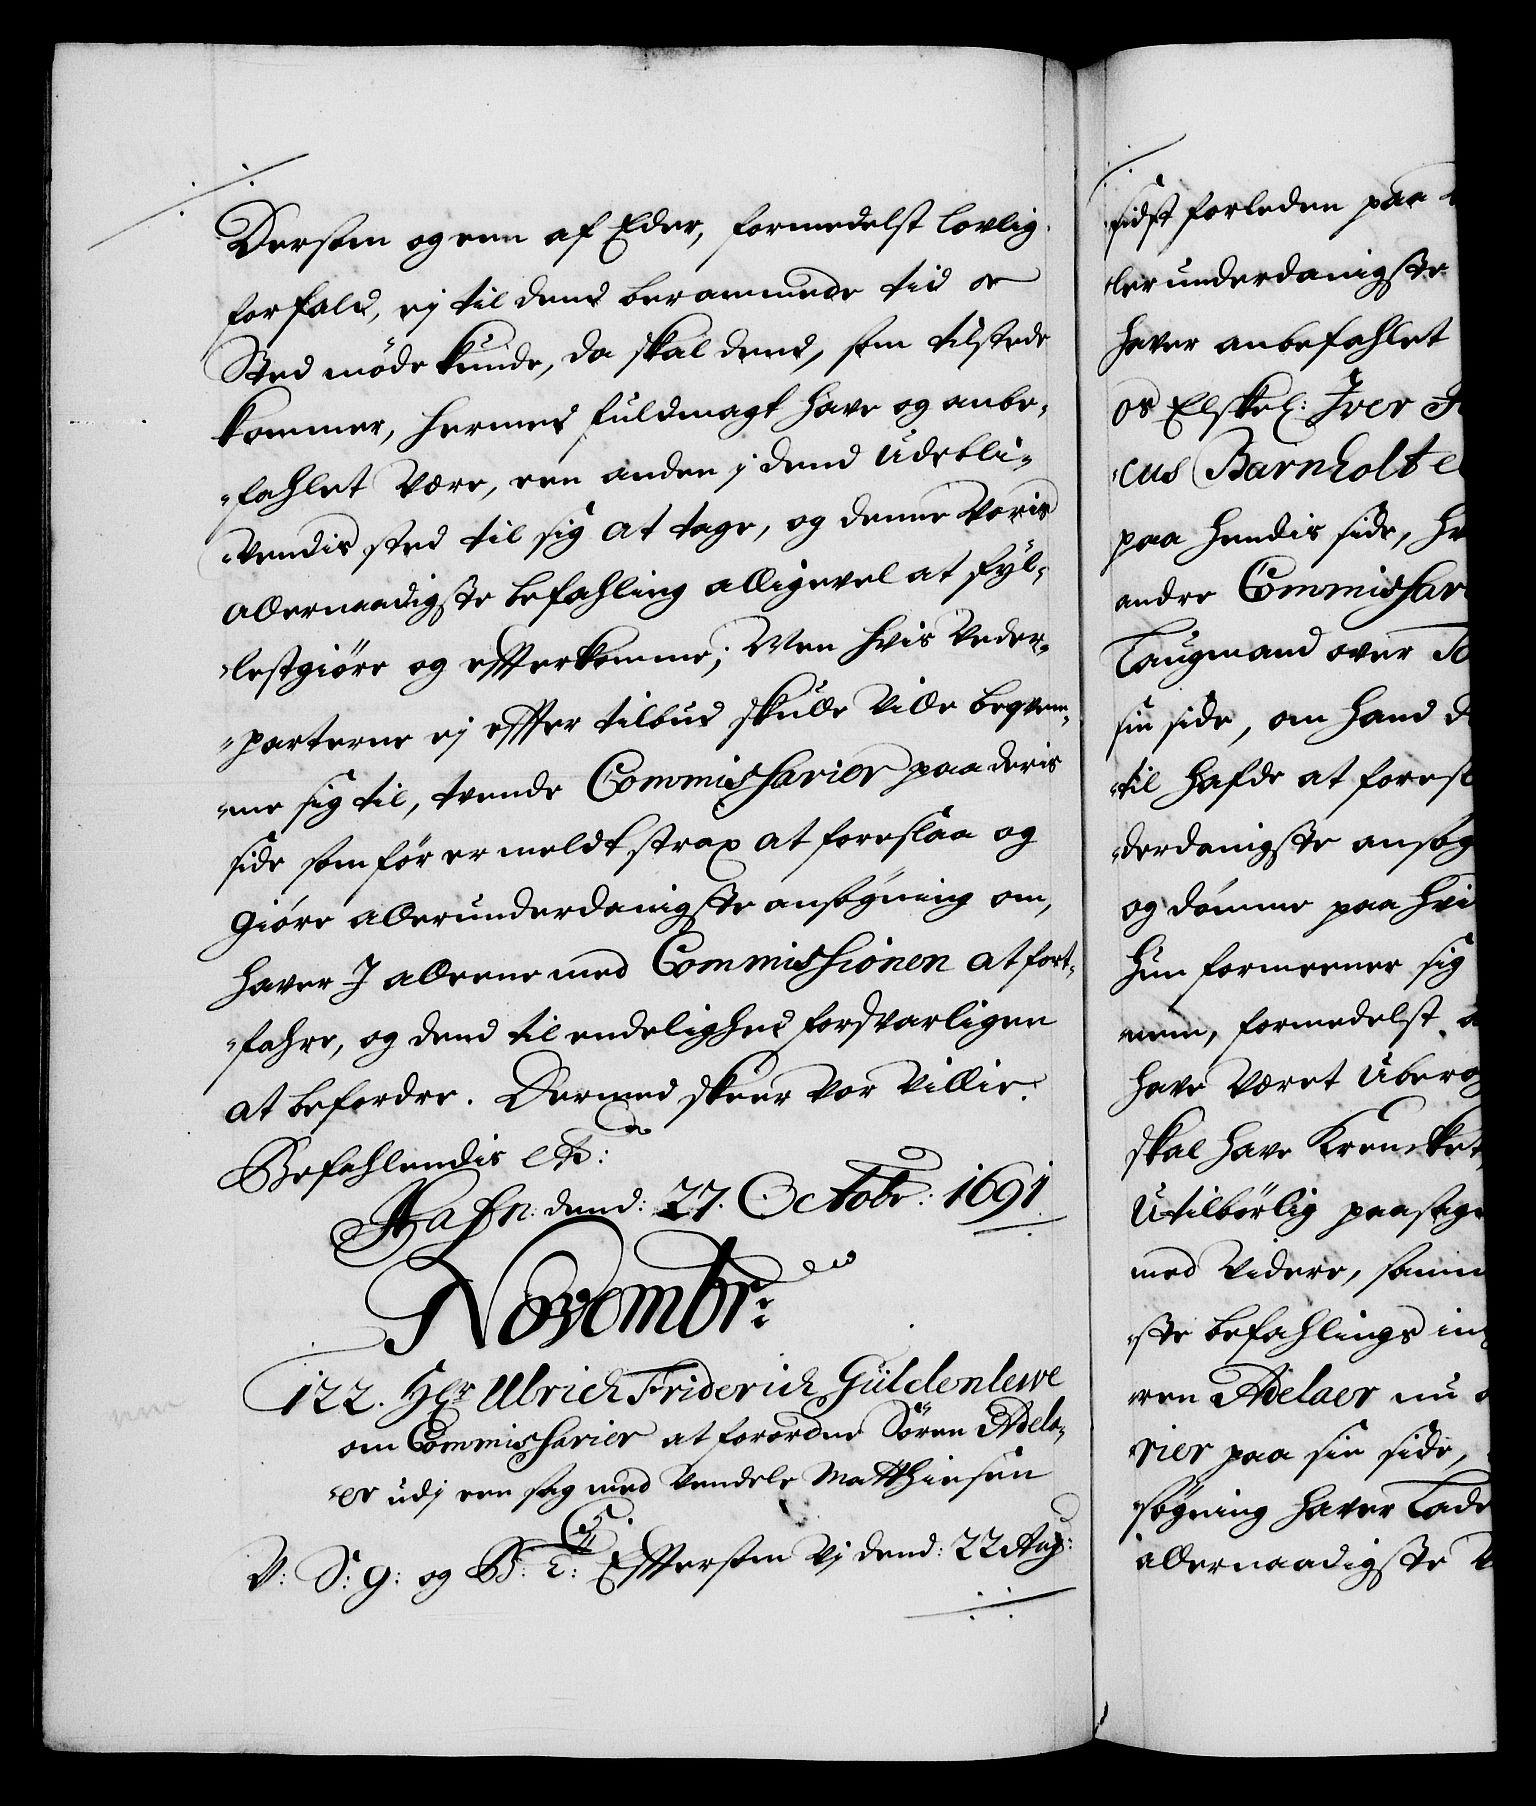 Dersom og een af Eder, formedelst lovlig
forfald, ej til dend berammede tid oc
Sted möde kunde, da skal dend, som tilstede
kommer, hermed fuldmagt have og anbe-
-fahlet være, een anden j dend udebli-
-vendis sted til sig at tage, og denne voris
allernaadigste befahling alligevel at fyl-
-lestgiöre og efterkomme; Men hvis Veder-
-parterne ej efter tilbud skulle ville beqvem-
-me sig til, tvende Commissarier paa deris
side som för er meldt strax at foreslaa og
giöre allerunderdanigste ansögning om,
haver I alleene med Commissionen at fort-
-fahre, og dend til endelighed forsvarligen
at befordre. Dermed skeer vor villie.
Befahlendis etc:
Hafn: dend: 27. Octobr: 1691.
Novembr:
122. Hr Ulrich Friderich Güldenlewe
om Commissarier at forordne Sören Adela-
-er udj een sag med Vendele Matthiesen
C5.
V: S: g: og B: t: Eftersom Vj dend: 22 Aug:
sidst forleden paa
-lerunderdanigste
haver anbefahlet
os Elskel: Iver
-cus Barnholt
paa hendis side,
andre Commissari
Laugmand over
sin side, om hand
-til hafde at foresl
-derdanigste ansög
og dömme paa hvi
hun formeener sig
-nem, formedelst
have været uberog
skal have krencket,
utilbörlig paasige
med videre, samm
-ste befahlings in
-ren Adelaer nu
-rier paa sin side,
-sögning haver lade
allernaadigste